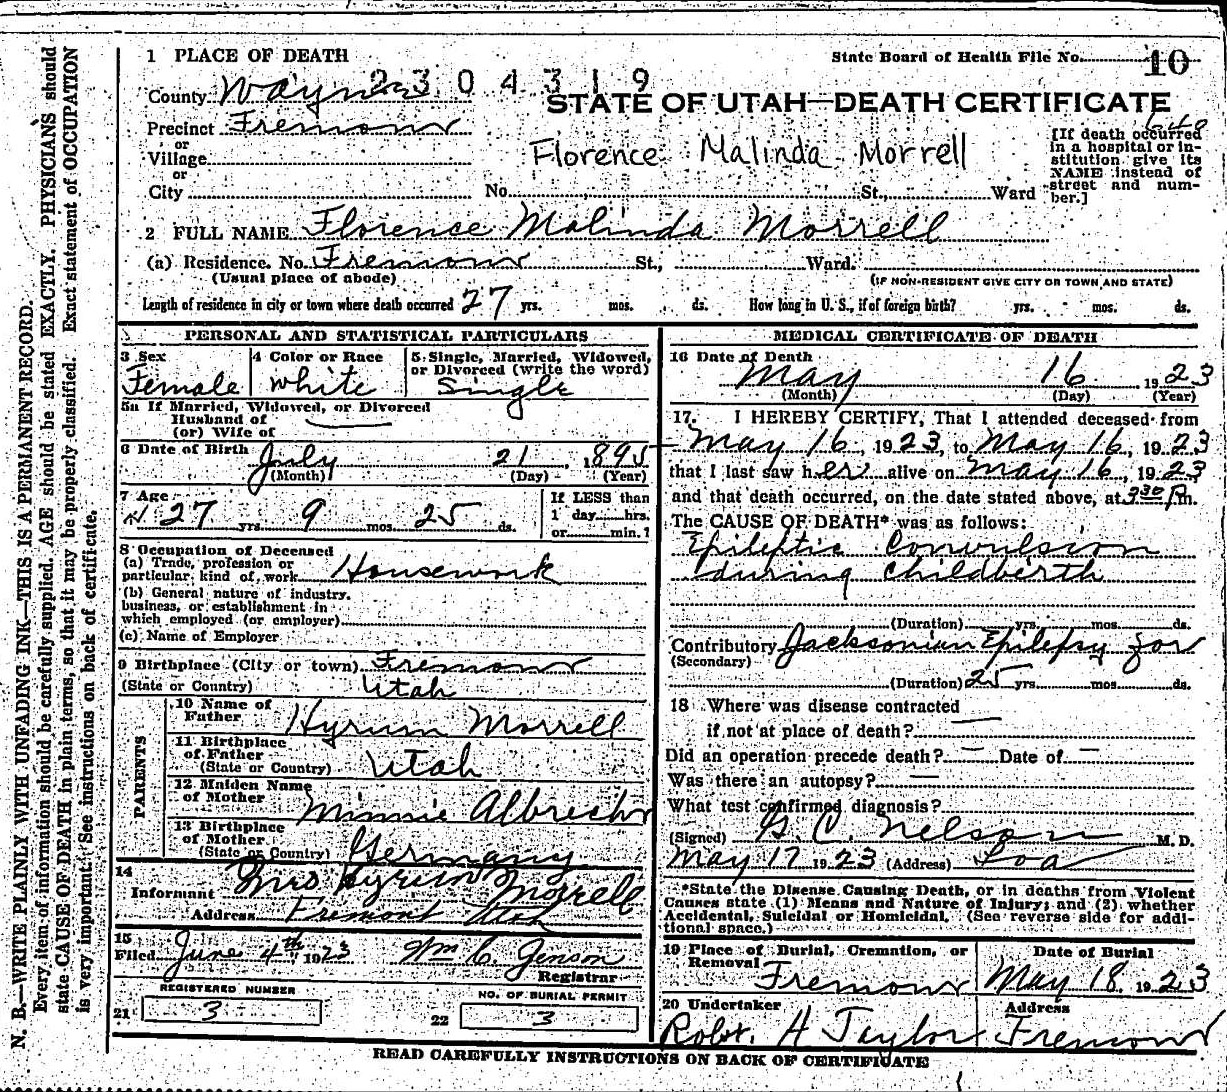 1 PLACE OF DEATH
State Board of Health File No. 10
County Wayne 2304319
STATE OF UTAH—DEATH CERTIFICATE
Precinct Fremont
or
Village
or
City No. St., Ward
Florence Malinda Morrell
[If death occurred in a hospital or in-
stitution give its
NAME instead of
street and num-
ber.]
2 FULL NAME Florence Malinda Morrell
(a) Residence. No. Fremont St., Ward.
(Usual place of abode) (IF NON-RESIDENT GIVE CITY OR TOWN AND STATE)
Length of residence in city or town where death occurred 27 yrs. mos. ds. How long in U. S., if of foreign birth? yrs. mos. ds.
PERSONAL AND STATISTICAL PARTICULARS
3 Sex Female
4 Color or Race White
5 Single, Married, Widowed,
or Divorced (write the word)
Single
5a If Married, Widowed, or Divorced
Husband of
(or) Wife of
6 Date of Birth July 21, 1895
(Month) (Day) (Year)
7 Age 27 yrs. 9 mos. 25 ds.
If LESS than
1 day hrs.
or min.?
8 Occupation of Deceased
(a) Trade, profession or
particular kind of work Housework
(b) General nature of industry,
business, or establishment in
which employed (or employer)
(c) Name of Employer
9 Birthplace (City or town) Fremont
(State or Country) Utah
PARENTS
10 Name of
Father Hyrum Morrell
11 Birthplace
of Father
(State or Country) Utah
12 Maiden Name
of Mother Minnie Albrecht
13 Birthplace
of Mother
(State or Country) Germany
14
Informant Mrs Hyrum Morrell
Address Fremont Utah
15
Filed June 4th 1923 Wm C. Jenson
Registrar
REGISTERED NUMBER
21 3
NO. OF BURIAL PERMIT
22 3
MEDICAL CERTIFICATE OF DEATH
16 Date of Death
May 16 1923
(Month) (Day) (Year)
17. I HEREBY CERTIFY, That I attended deceased from
May 16, 1923, to May 16, 1923
that I last saw her alive on May 16, 1923
and that death occurred, on the date stated above, at 3 30 P.m.
The CAUSE OF DEATH* was as follows:
Epileptic Convulsion
during childbirth
(Duration) yrs. mos. ds.
Contributory Jacksonian Epilepsy for
(Secondary)
(Duration) 25 yrs. mos. ds.
18 Where was disease contracted
if not at place of death?
Did an operation precede death? — Date of —
Was there an autopsy? —
What test confirmed diagnosis?
(Signed) G. C. Nelson M. D.
May 17 1923 (Address) Loa
*State the Disease Causing Death, or in deaths from Violent
Causes state (1) Means and Nature of Injury; and (2) whether
Accidental, Suicidal or Homicidal. (See reverse side for addi-
tional space.)
19 Place of Burial, Cremation, or
Removal
Fremont
Date of Burial
May 18, 1923
20 Undertaker
Robt. A Taylor
Address
Fremont
READ CAREFULLY INSTRUCTIONS ON BACK OF CERTIFICATE
N. B.—WRITE PLAINLY WITH UNFADING INK—THIS IS A PERMANENT RECORD.
Every item of information should be carefully supplied. AGE should be stated EXACTLY. PHYSICIANS should
state CAUSE OF DEATH in plain terms, so that it may be properly classified. Exact statement of OCCUPATION
is very important. See instructions on back of certificate.